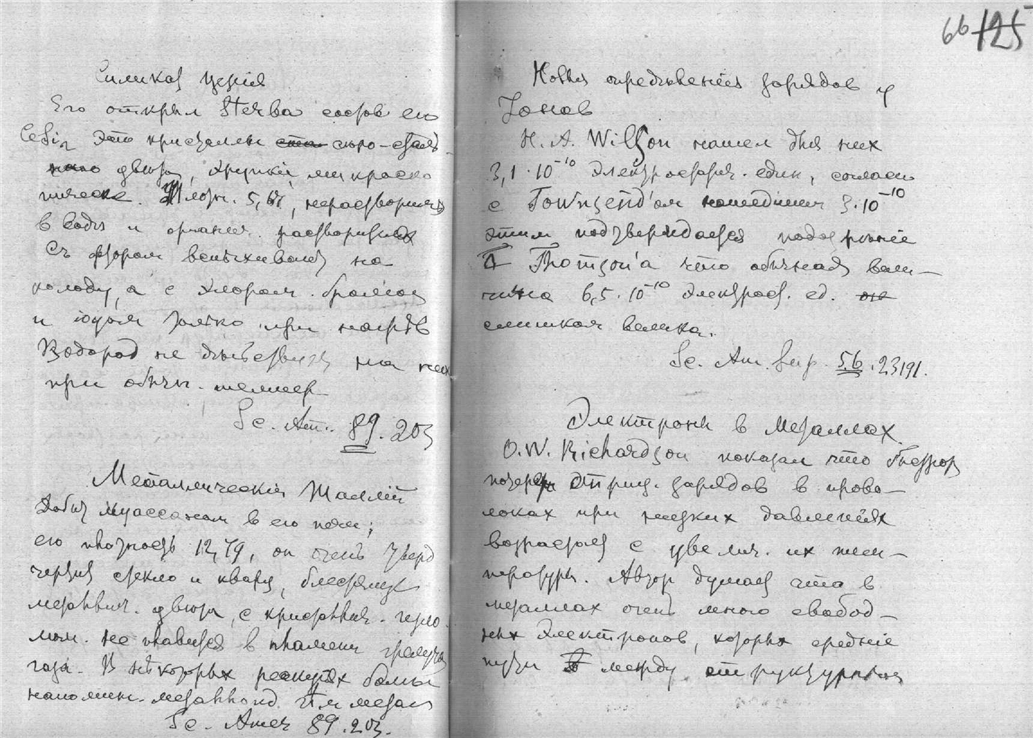 Силикат церія
Его открыл Sterba состав его
CeSi2 это кристаллы серо-сталь
цвета, хрупкій микроско
пическ. Плотн. 5,67, нерастворимъ
въ водѣ и органич. растворителях
Съ фтором вспыхивает на
холоду, а с хлором бромом
и іодом только при нагрѣв
Водород не дѣйствует на них
при обычн. темпер
Sc. Am. 89. 203
Металлическій
Добыт Муассаном в его печи;
его плотность 12,79, он очень тверд
чертит стекло и кварц, блестящ
металлич. цвета, с кристаллич.
не плавится в пламени гремуч
газа. В нѣкоторых больш
напомин. металлоид. чѣм металл
Sc. Amer 89. 203.
66 125
Новыя опредѣленія зарядов у
Іонов
H. A. Wilson нашел для них
3,1 · 10⁻¹⁰ электростат. един, согласн
с Townsend'ом нашедшим 3·10⁻¹⁰
этим подтверждается подозрѣніе
Thomson'a что обычная вели-
чина 6,5 · 10⁻¹⁰ электрост. ед.
слишком велика.
Sc. Am. Sup. 56. 23191.
Электроны в металлах.
O. W. Richardson показал что быстрот
потери отриц. зарядов в прово-
локах при низких давленіях
возрастает с увелич. их тем-
пературы. Автор думает что в
металлах очень много свобод-
ных электронов, которых средніе
пути между структурными